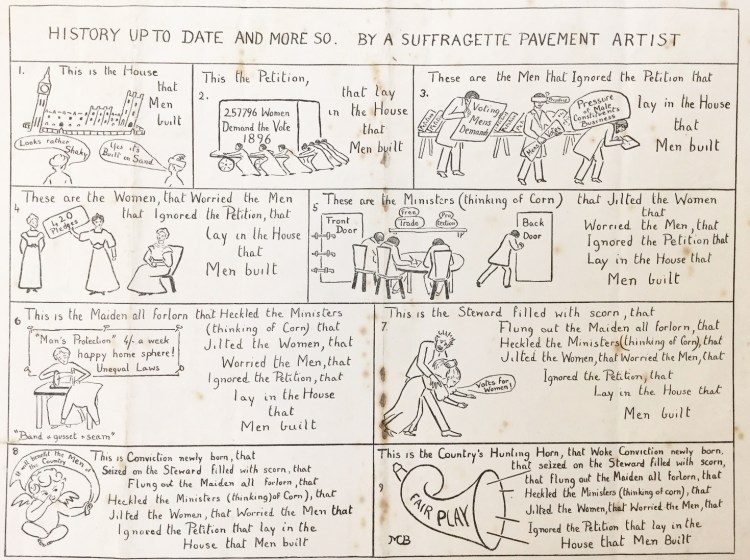 HISTORY UP TO DATE AND MORE SO. BY A SUFFRAGETTE PAVEMENT ARTIST
1. This is the House
that
Men
built
Looks rather
Shaky
Yes it's
Built on Sand
2. This the Petition,
that lay
in the House
that
Men built
257796 Women
Demand the Vote
1896
3. These are the Men that Ignored the Petition that
lay in the House
that
Men built
Voting
Mens
Demands
Pressure
of Male
Constituent's
Business
4 These are the Women, that Worried the Men
that Ignored the Petition, that
lay in the House
that
Men built
420
Pledges
5 These are the Ministers (thinking of Corn) that Jilted the Women
that
Worried the Men, that
Ignored the Petition that
Lay in the House that
Men built
Front
Door
Free
Trade
Pro
tection
Back
Door
6 This is the Maiden all forlorn that Heckled the Ministers
(thinking of Corn) that
Jilted the Women, that
Worried the Men, that
Ignored the Petition, that
lay in the House
that
Men built
"Man's Protection" 4/- a week
happy home sphere!
Unequal Laws
"Band & gusset & seam"
7. This is the Steward filled with scorn, that
Flung out the Maiden all forlorn, that
Heckled the Ministers (thinking of Corn), that
Jilted the Women, that Worried the Men, that
Ignored the Petition, that
Lay in the House that
Men built
Votes for
Women!
8 This is Conviction newly born, that
Seized on the Steward filled with scorn, that
Flung out the Maiden all forlorn, that
Heckled the Ministers (thinking of Corn), that
Jilted the Women, that Worried the Men that
Ignored the Petition that lay in the
House that Men built
It will benefit the Men of
the Country
9 This is the Country's Hunting Horn, that Woke Conviction newly born.
that seized on the Steward filled with scorn,
that flung out the Maiden all forlorn, that
Heckled the Ministers (thinking of corn), that
Jilted the Women, that Worried the Men, that
Ignored the Petition that lay in the
House that Men Built
FAIR PLAY
MCB